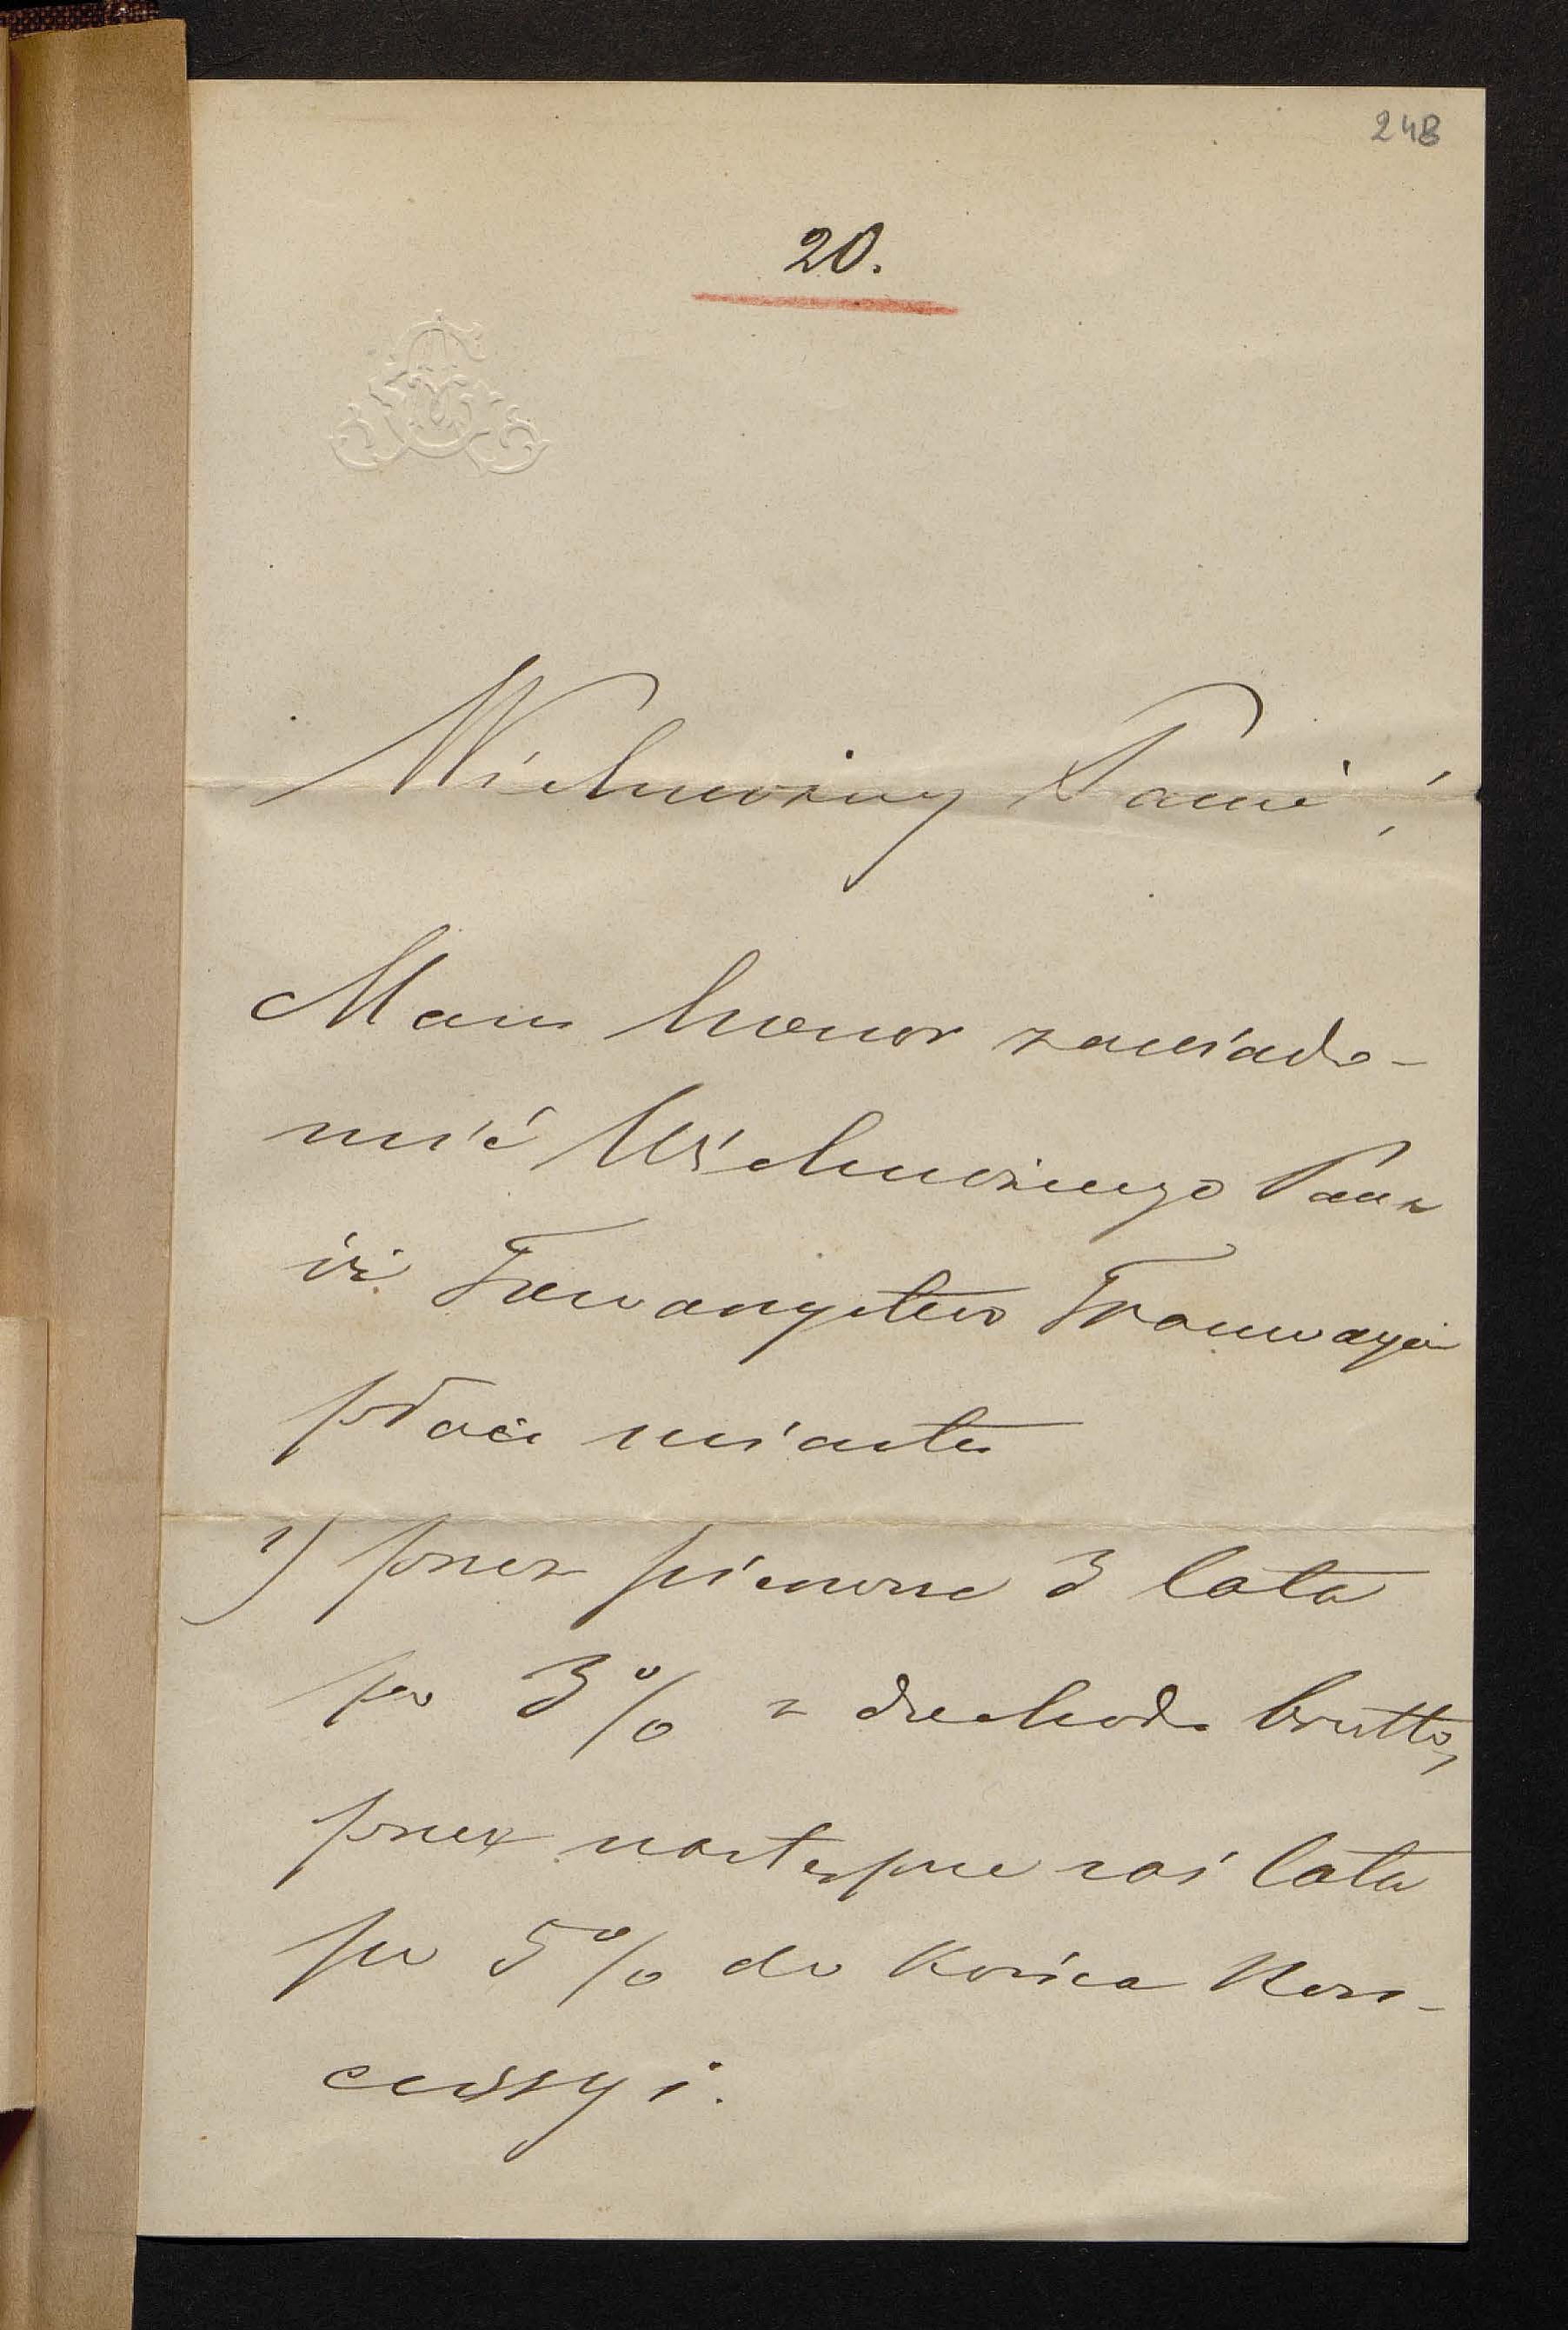 248
20.
Wielmożny Panie!
Mam honor zawiado-
mić Wielmożnego Pana
iż Towarzystwo Tramwajów
płaci miastu
1) przez pierwsze 3 lata
po 3% z dochodu brutto,
przez następne zaś lata
po 5% do końca Kon-
cessyi.